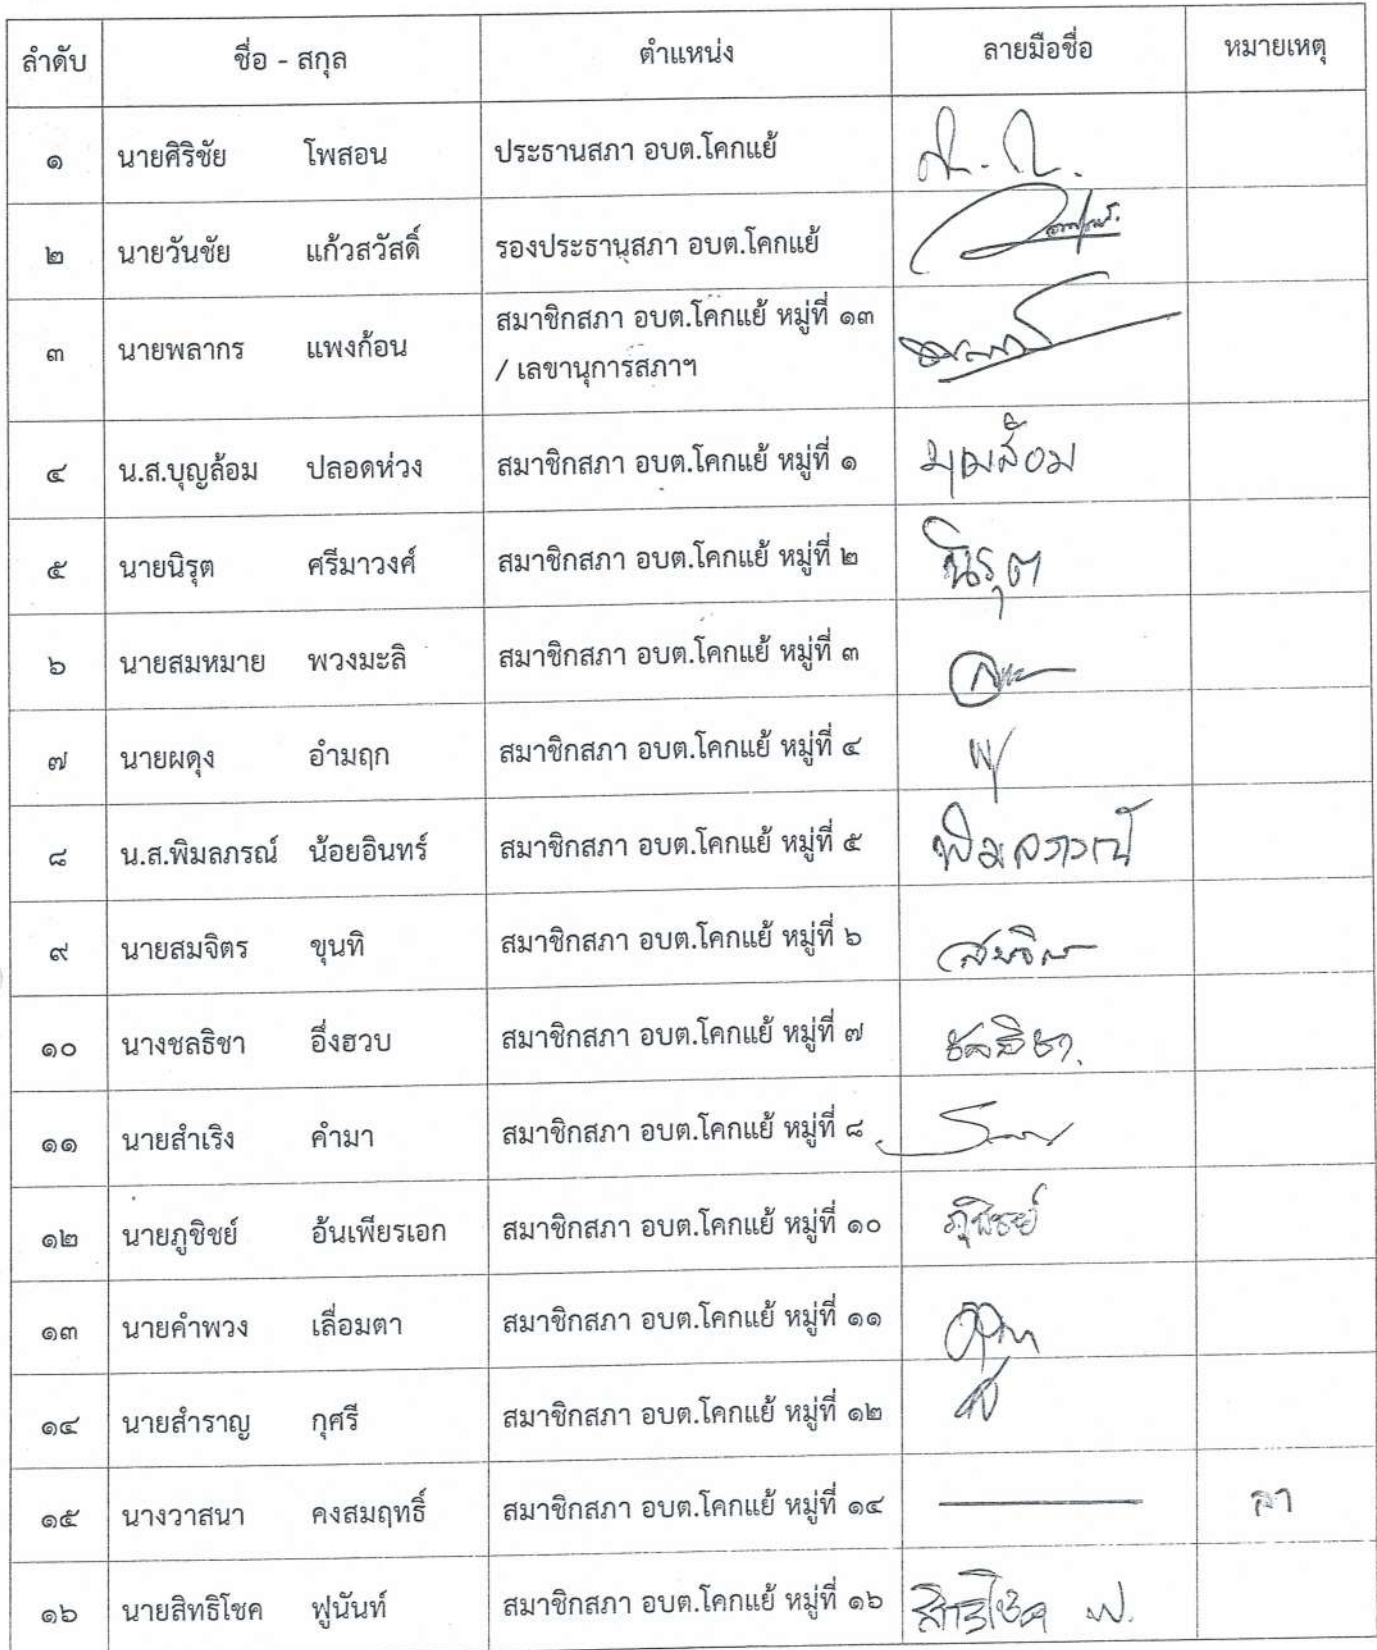 ลำดับ ชื่อ - สกุล ตำแหน่ง ลายมือชื่อ หมายเหตุ
๑ นายศิริชัย โพสอน ประธานสภา อบต.โคกแย้
๒ นายวันชัย แก้วสวัสดิ์ รองประธานสภา อบต.โคกแย้
๓ นายพลากร แพงก้อน สมาชิกสภา อบต.โคกแย้ หมู่ที่ ๑๓
/ เลขานุการสภาฯ
๔ น.ส.บุญล้อม ปลอดห่วง สมาชิกสภา อบต.โคกแย้ หมู่ที่ ๑ บุญล้อม
๕ นายนิรุต ศรีมาวงศ์ สมาชิกสภา อบต.โคกแย้ หมู่ที่ ๒ นิรุต
๖ นายสมหมาย พวงมะลิ สมาชิกสภา อบต.โคกแย้ หมู่ที่ ๓
๗ นายผดุง อำมฤก สมาชิกสภา อบต.โคกแย้ หมู่ที่ ๔
๘ น.ส.พิมลภรณ์ น้อยอินทร์ สมาชิกสภา อบต.โคกแย้ หมู่ที่ ๕ พิมลภรณ์
๙ นายสมจิตร ขุนทิ สมาชิกสภา อบต.โคกแย้ หมู่ที่ ๖
๑๐ นางชลธิชา อึ่งฮวบ สมาชิกสภา อบต.โคกแย้ หมู่ที่ ๗ ชลธิชา
๑๑ นายสำเริง คำมา สมาชิกสภา อบต.โคกแย้ หมู่ที่ ๘
๑๒ นายภูชิชย์ อ้นเพียรเอก สมาชิกสภา อบต.โคกแย้ หมู่ที่ ๑๐ ภูชิชย์
๑๓ นายคำพวง เลื่อมตา สมาชิกสภา อบต.โคกแย้ หมู่ที่ ๑๑
๑๔ นายสำราญ กุศรี สมาชิกสภา อบต.โคกแย้ หมู่ที่ ๑๒
๑๕ นางวาสนา คงสมฤทธิ์ สมาชิกสภา อบต.โคกแย้ หมู่ที่ ๑๔ ลา
๑๖ นายสิทธิโชค ฟูนันท์ สมาชิกสภา อบต.โคกแย้ หมู่ที่ ๑๖ สิทธิโชค ฟ.